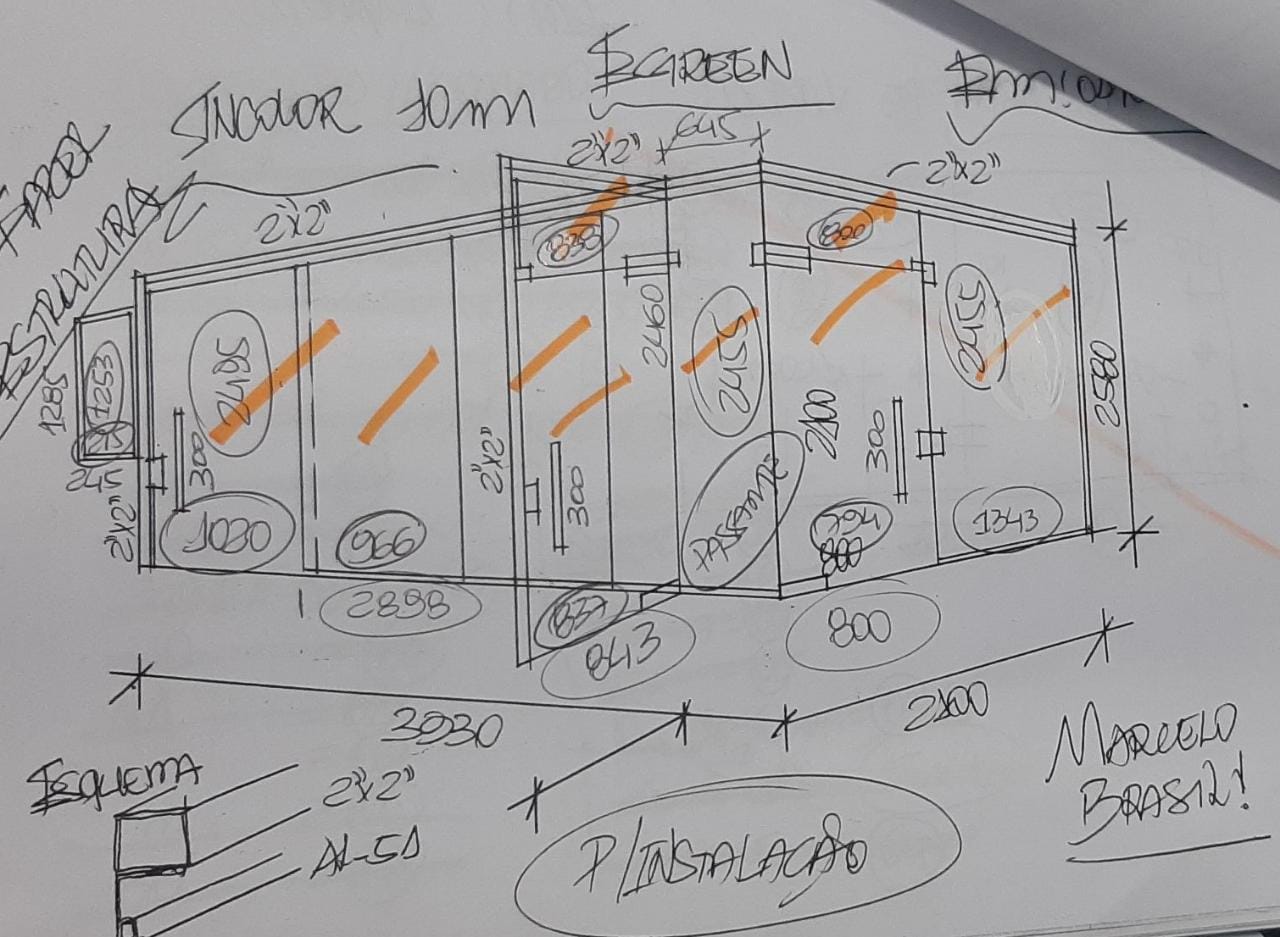 INCOLOR 10mm
SCREEN
FAZER
ESTRUTURA
2"x2"
2"x2"
645
2"x2"
838
800
2495
2460
2455
2455
1285
1253
245
2"x2"
300
2"x2"
300
2100
300
2580
1030
966
PASSANTE
794
800
1343
2898
837
843
800
3030
2100
ESQUEMA
2"x2"
AL-51
P/INSTALAÇÃO
MARCELO
BRASIL!